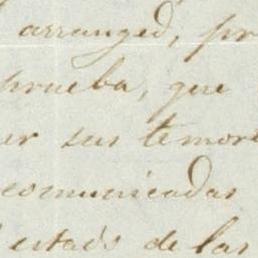 arranged, pr
prueba, que
er sus temor
comunicadas
estado de las